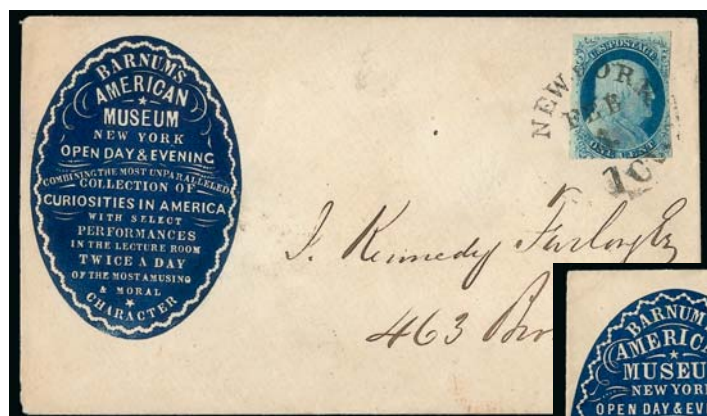 BARNUM'S
AMERICAN
MUSEUM
NEW YORK
OPEN DAY & EVENING
COMBINING THE MOST UNPARALLELED
COLLECTION OF
CURIOSITIES IN AMERICA
WITH SELECT
PERFORMANCES
IN THE LECTURE ROOM
TWICE A DAY
OF THE MOST AMUSING
& MORAL
CHARACTER
U.S. POSTAGE
ONE CENT
NEW YORK
1 C
J. Kennedy Furlong Esq
463 Bro
BARNUM'S
AMERICA
MUSEU
NEW YORK
OPEN DAY & EVE